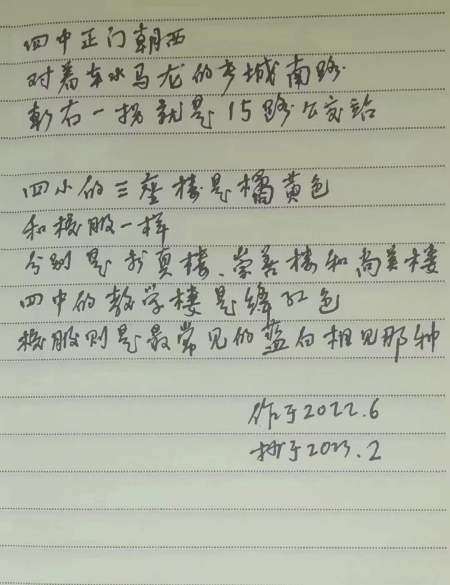 四中正门朝西
对着车水马龙的乡城南路
朝右一拐就是15路公交站
四小的三座楼是橘黄色
和校服一样
分别是求真楼、崇善楼和尚美楼
四中的教学楼是绛红色
校服则是最常见的蓝白相见那种
作于2022.6
抄于2023.2